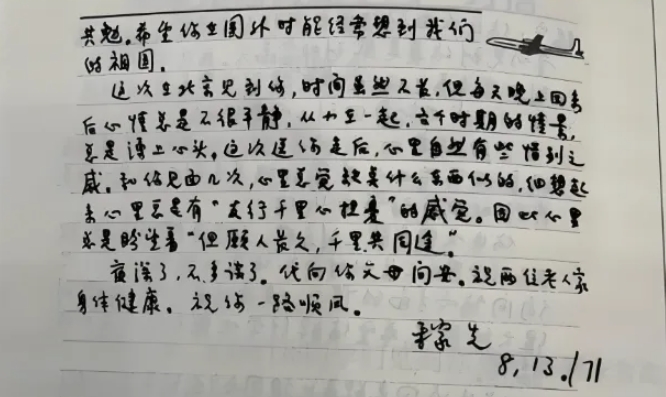 共勉。希望你在国外时能经常想到我们
的祖国。
这次在北京见到你,时间虽然不长,但每天晚上回来
后心情总是不很平静,从小在一起,各个时期的情景,
总是涌上心头。这次送你走后,心里自然有些惜别之
感。和你见面几次,心里总觉缺点什么东西似的,细想起
来心里总是有“友行千里心担忧”的感觉。因此心里
总是盼望着“但愿人长久,千里共同途”
夜深了,不多谈了。代向你父母问安。祝两位老人家
身体健康。祝你一路顺风。
家先
8,13./71